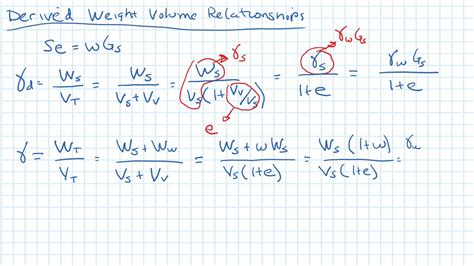 Derived Weight Volume Relationshops
Se = wGs
γd = Ws/VT = Ws/(Vs + Vv) = Ws/(Vs(1 + Vv/Vs)) = γs/(1+e) = γwGs/(1+e)
γs γwGs
e
γ = WT/VT = (Ws + Ww)/(Vs + Vv) = (Ws + wWs)/(Vs(1+e)) = Ws(1+w)/(Vs(1+e)) = γw